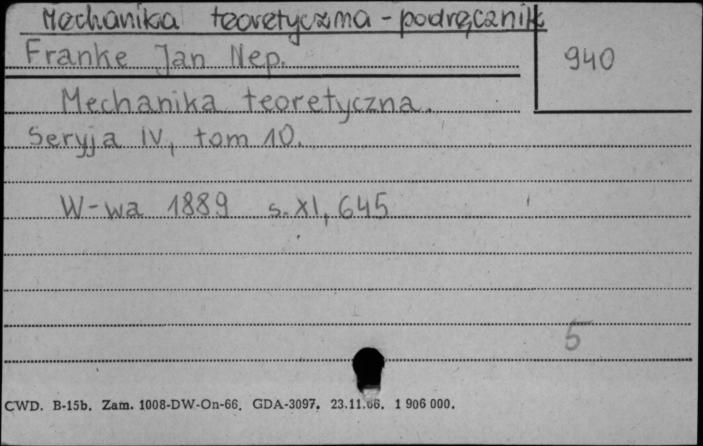 Mechanika teoretyczna - podręcznik
Franke Jan Nep.
940
Mechanika teoretyczna.
Seryja IV, tom 10.
W-wa 1889 s. XI, 645
5
CWD. B-15b. Zam. 1008-DW-On-66. GDA-3097. 23.11.66. 1 906 000.